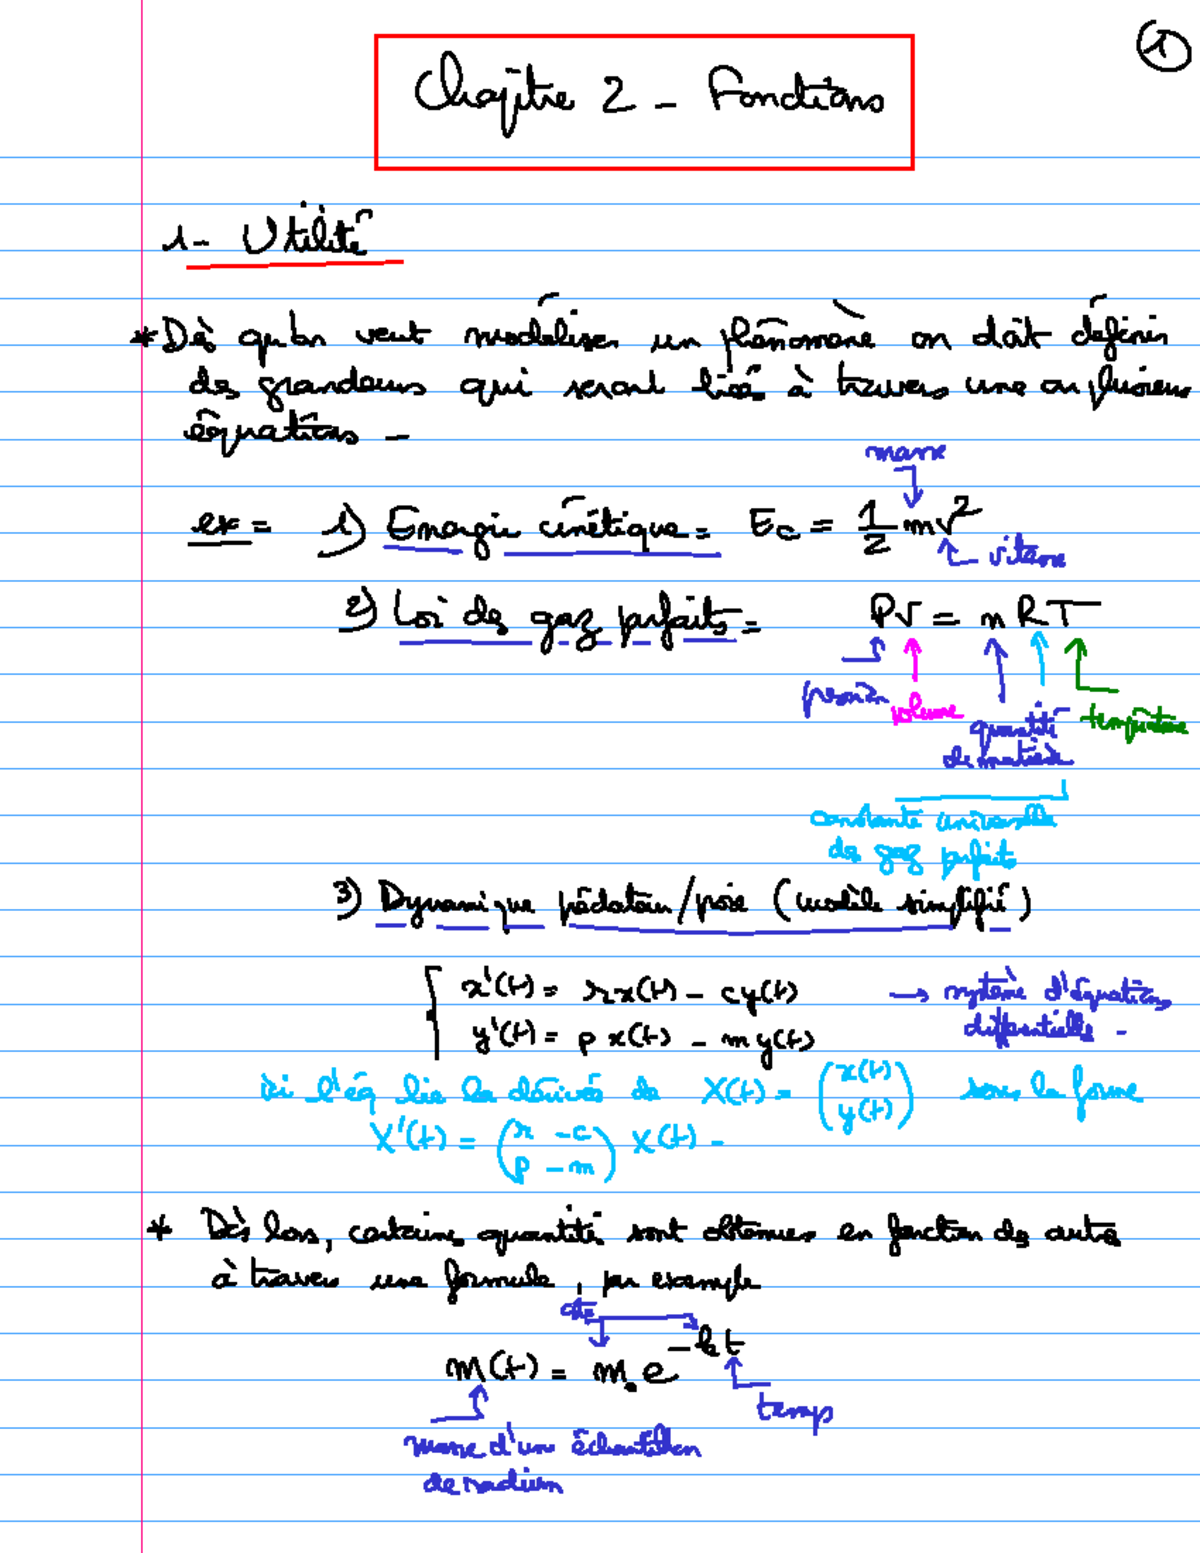 1
Chapitre 2 - Fonctions
1- Utilité
* Dès qu'on veut modéliser un phénomène on doit définir
des grandeurs qui seront liées à travers une ou plusieurs
équations -
masse
ex = 1) Energie cinétique = Ec = 1/2 mv²
vitesse
2) Loi des gaz parfaits = PV = nRT
pression volume quantité de matière température
constante universelle
des gaz parfaits
3) Dynamique prédateur/proie (modèle simplifié)
x'(t) = rx(t) - cy(t) → système d'équations
y'(t) = px(t) - my(t) différentielles -
Ici l'éq lie les dérivées de X(t) = (x(t) y(t)) sous la forme
X'(t) = (r -c p -m) X(t) -
* Dès lors, certaines quantités sont obtenues en fonction des autres
à travers une formule, par exemple
cte
m(t) = m₀e^-kt
temps
masse d'un échantillon
de radium